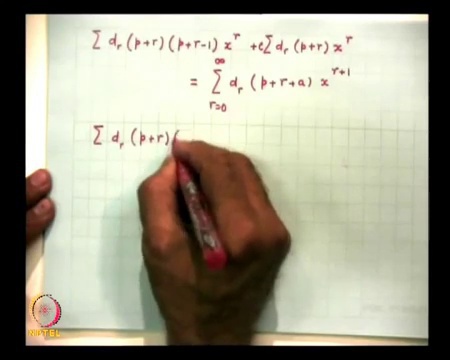 Σ d_r (p+r) (p+r-1) x^r + c Σ d_r (p+r) x^r
= Σ_{r=0}^{∞} d_r (p+r+a) x^{r+1}
Σ d_r (p+r) (
NPTEL